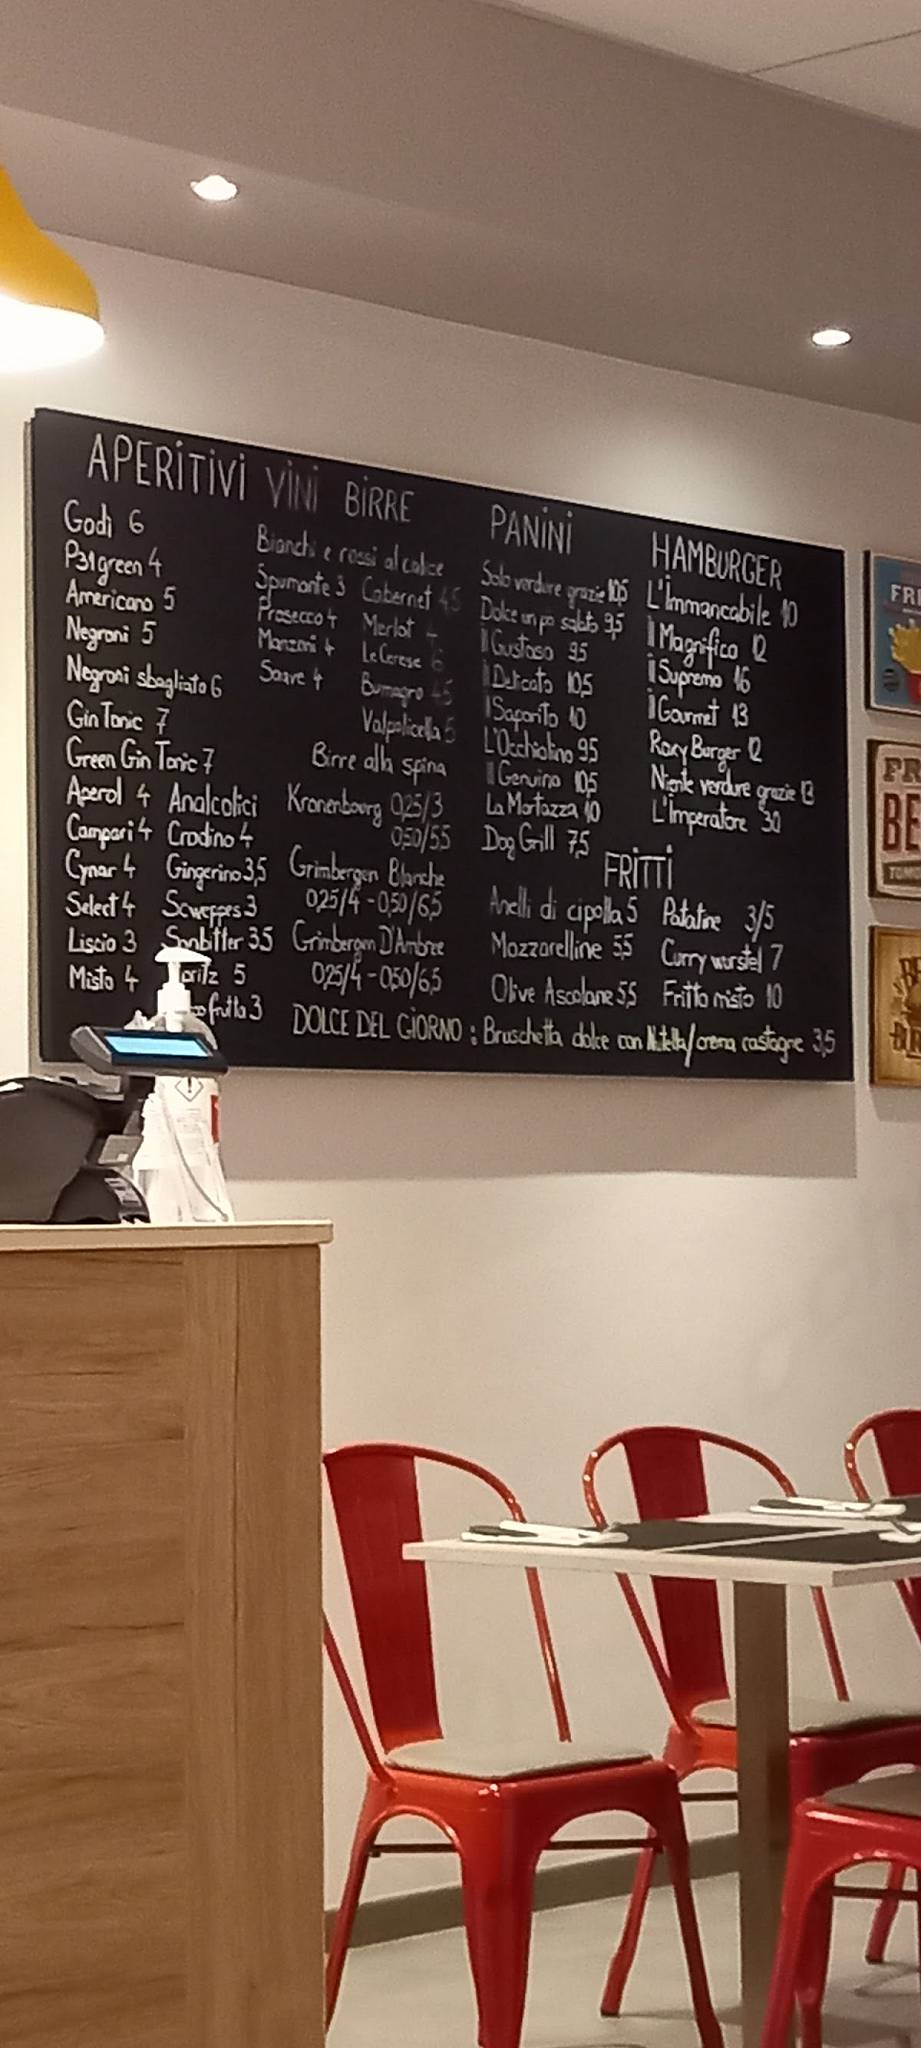 APERITIVI VINI BIRRE
Godi 6
P31green 4
Americano 5
Negroni 5
Negroni sbagliato 6
Gin Tonic 7
Green Gin Tonic 7
Aperol 4
Campari 4
Cynar 4
Select 4
Liscio 3
Misto 4
Analcolici
Crodino 4
Gingerino 3,5
Scweppes 3
Sanbitter 3,5
5
frutta 3
Bianchi e rossi al calice
Spumante 3
Prosecco 4
Manzoni 4
Soave 4
Cabernet 4,5
Merlot 4
Le Cerese 6
4,5
Valpolicella 5
Birre alla spina
Kronenbourg 0,25/3
0,50/5,5
Grimbergen Blanche
0,25/4 - 0,50/6,5
Grimbergen D'Ambree
0,25/4 - 0,50/6,5
PANINI
Solo verdure grazie 10,5
Dolce un po salato 9,5
Il Gustoso 9,5
Il Delicato 10,5
Il Saporito 10
L'Occhiolino 9,5
Il Genuino 10,5
La Mortazza 10
Dog Grill 7,5
HAMBURGER
L'Immancabile 10
Il Magnifico 12
Il Supremo 16
Il Gourmet 13
Roxy Burger 12
Niente verdure grazie 13
L'Imperatore 30
FRITTI
Anelli di cipolla 5
Mozzarelline 5,5
Olive Ascolane 5,5
Patatine 3/5
Curry wurstel 7
Fritto misto 10
DOLCE DEL GIORNO : Bruschetta dolce con Nutella/crema castagne 3,5
FRI
FR
BE